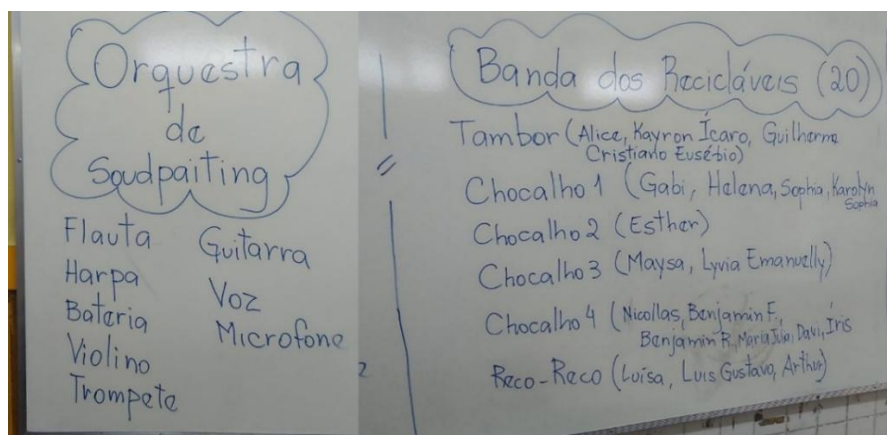 Orquestra
de
Soudpaiting
Flauta
Harpa
Bateria
Violino
Trompete
Guitarra
Voz
Microfone
Banda dos Recicláveis (20)
Tambor (Alice, Kayron Ícaro, Guilherme
Cristiano Eusébio)
Chocalho 1 (Gabi, Helena, Sophia, Karolyn
Sophia
Chocalho 2 (Esther)
Chocalho 3 (Maysa, Lyvia Emanuelly)
Chocalho 4 (Nicollas, Benjamin F.,
Benjamin R, Maria Júlia, Davi, Íris
Reco-Reco (Luísa, Luis Gustavo, Arthur)